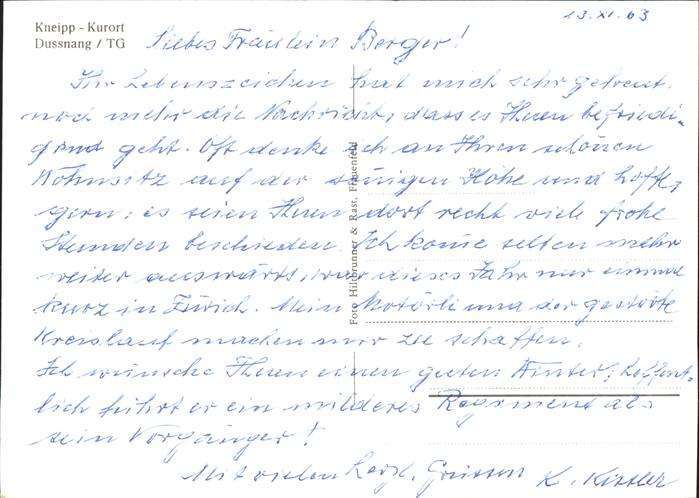 13.XI.63
Kneipp - Kurort
Dussnang / TG
Liebes Fräulein Berger!
Ihr Lebenszeichen hat mich sehr gefreut,
noch mehr die Nachricht, dass es Ihnen befriedi-
gend geht. Oft denke ich an Ihren schönen
Wohnsitz auf der sonnigen Höhe und hoffe
gern, es seien Ihnen dort recht viele frohe
Stunden beschieden. Ich komme selten mehr
weiter auswärts, war dieses Jahr nur einmal
kurz in Zürich. Mein Motörli und der gestörte
Kreislauf machen mir zu schaffen.
Ich wünsche Ihnen einen guten Winter; hoffent-
lich führt er ein milderes Regiment als
sein Vorgänger!
Mit vielen herzl. Grüssen K.
Foto Hildbrunner & Rast, Frauenfeld